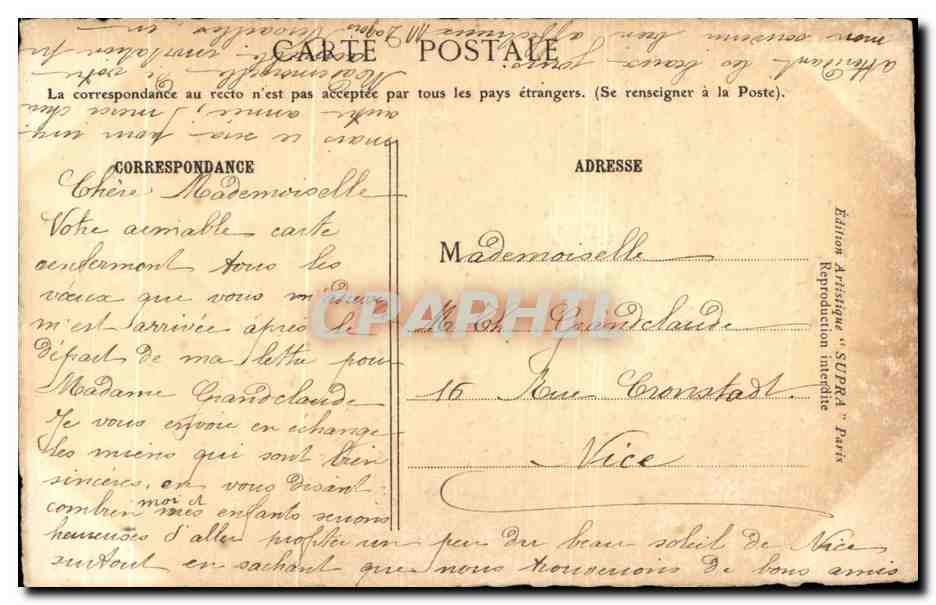 CARTE POSTALE
La correspondance au recto n'est pas acceptée par tous les pays étrangers. (Se renseigner à la Poste).
CORRESPONDANCE
ADRESSE
Chère Mademoiselle
Votre aimable carte
renfermant tous les
vœux que vous m'adressez
m'est arrivée après le
départ de ma lettre pour
Madame Grandclaude
Je vous envoie en échange
les miens qui sont bien
sincères, en vous disant
combien moi et mes enfants serions
heureuses d'aller profiter un peu du beau soleil de Nice
surtout en sachant que nous trouverions de bons amis
mais ce sera pour une
autre année, merci chère
Mademoiselle de votre
invitation
attendant les beaux jours
mon souvenir bien affectueux
Mademoiselle
M. Ch. Grandclaude
16 Rue Cronstadt
Nice
Édition Artistique "SUPRA" Paris
Reproduction interdite
CPAPHIL